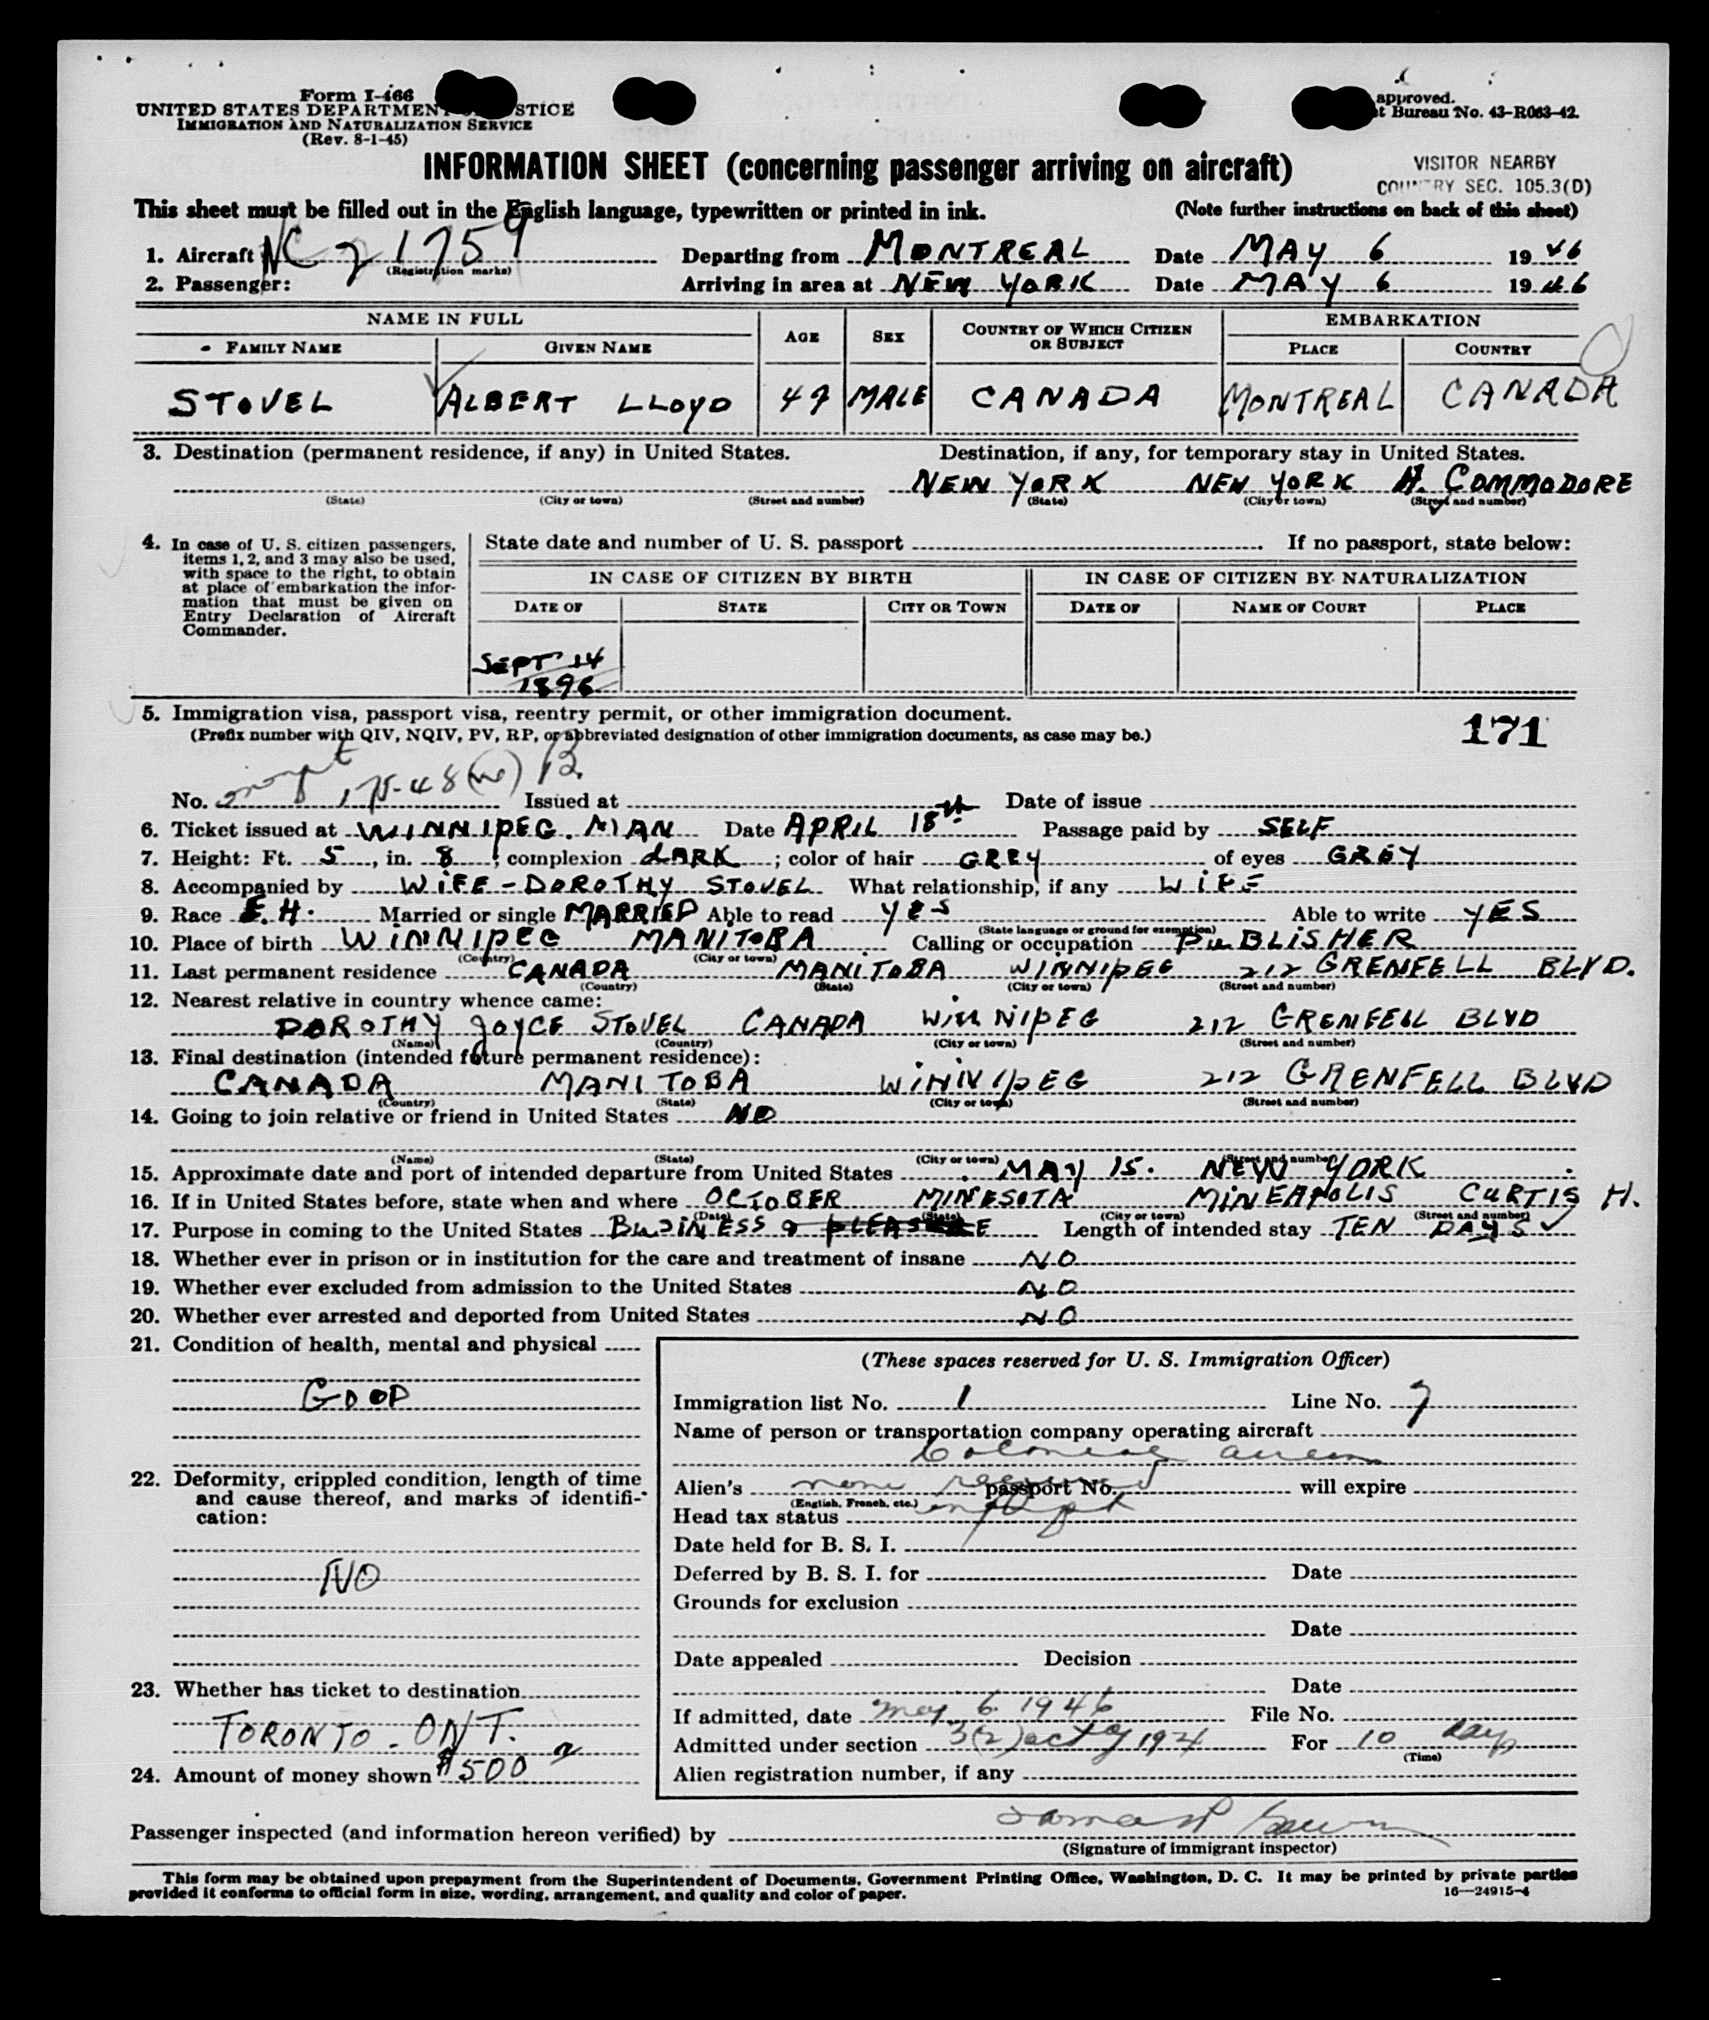 Form I-466
UNITED STATES DEPARTMENT STICE
IMMIGRATION AND NATURALIZATION SERVICE
(Rev. 8-1-45)
approved.
t Bureau No. 43-R063-42.
INFORMATION SHEET (concerning passenger arriving on aircraft)
VISITOR NEARBY
COUNTRY SEC. 105.3(D)
This sheet must be filled out in the English language, typewritten or printed in ink. (Note further instructions on back of this sheet)
1. Aircraft NC 21759 Departing from MONTREAL Date MAY 6 1946
(Registration marks)
2. Passenger: Arriving in area at NEW YORK Date MAY 6 1946
NAME IN FULL AGE SEX COUNTRY OF WHICH CITIZEN OR SUBJECT EMBARKATION
FAMILY NAME GIVEN NAME PLACE COUNTRY
STOVEL ALBERT LLOYD 49 MALE CANADA MONTREAL CANADA
3. Destination (permanent residence, if any) in United States. Destination, if any, for temporary stay in United States.
NEW YORK NEW YORK H. COMMODORE
(State) (City or town) (Street and number) (State) (City or town) (Street and number)
4. In case of U. S. citizen passengers, items 1, 2, and 3 may also be used, with space to the right, to obtain at place of embarkation the information that must be given on Entry Declaration of Aircraft Commander.
State date and number of U. S. passport If no passport, state below:
IN CASE OF CITIZEN BY BIRTH IN CASE OF CITIZEN BY NATURALIZATION
DATE OF STATE CITY OR TOWN DATE OF NAME OF COURT PLACE
SEPT 14
1896
5. Immigration visa, passport visa, reentry permit, or other immigration document.
(Prefix number with QIV, NQIV, PV, RP, or abbreviated designation of other immigration documents, as case may be.)
171
No. Issued at Date of issue
6. Ticket issued at WINNIPEG. MAN Date APRIL 18th Passage paid by SELF
7. Height: Ft. 5, in. 8; complexion DARK; color of hair GREY of eyes GREY
8. Accompanied by WIFE - DOROTHY STOVEL What relationship, if any WIFE
9. Race E.H. Married or single MARRIED Able to read YES Able to write YES
(State language or ground for exemption)
10. Place of birth WINNIPEG MANITOBA Calling or occupation PUBLISHER
(Country) (City or town)
11. Last permanent residence CANADA MANITOBA WINNIPEG 212 GRENFELL BLVD.
(Country) (State) (City or town) (Street and number)
12. Nearest relative in country whence came:
DOROTHY JOYCE STOVEL CANADA WINNIPEG 212 GRENFELL BLVD
(Name) (Country) (City or town) (Street and number)
13. Final destination (intended future permanent residence):
CANADA MANITOBA WINNIPEG 212 GRENFELL BLVD
(Country) (State) (City or town) (Street and number)
14. Going to join relative or friend in United States NO
(Name) (State) (City or town) (Street and number)
15. Approximate date and port of intended departure from United States MAY 15. NEW YORK
16. If in United States before, state when and where OCTOBER MINESOTA MINEAPOLIS CURTIS H.
(Date) (State) (City or town) (Street and number)
17. Purpose in coming to the United States BUSINESS & PLEASURE Length of intended stay TEN DAYS
18. Whether ever in prison or in institution for the care and treatment of insane NO
19. Whether ever excluded from admission to the United States NO
20. Whether ever arrested and deported from United States NO
21. Condition of health, mental and physical
GOOD
22. Deformity, crippled condition, length of time and cause thereof, and marks of identification:
NO
23. Whether has ticket to destination
TORONTO - ONT.
24. Amount of money shown $500
(These spaces reserved for U. S. Immigration Officer)
Immigration list No. 1 Line No. 7
Name of person or transportation company operating aircraft
Colonial
Alien's none required passport No. will expire
(English, French, etc.)
Head tax status exempt
Date held for B. S. I.
Deferred by B. S. I. for Date
Grounds for exclusion
Date
Date appealed Decision
Date
If admitted, date May 6 1946 File No.
Admitted under section 3(2) act of 1924 For 10 days
(Time)
Alien registration number, if any
Passenger inspected (and information hereon verified) by
(Signature of immigrant inspector)
This form may be obtained upon prepayment from the Superintendent of Documents, Government Printing Office, Washington, D. C. It may be printed by private parties
provided it conforms to official form in size, wording, arrangement, and quality and color of paper. 16—24915-4